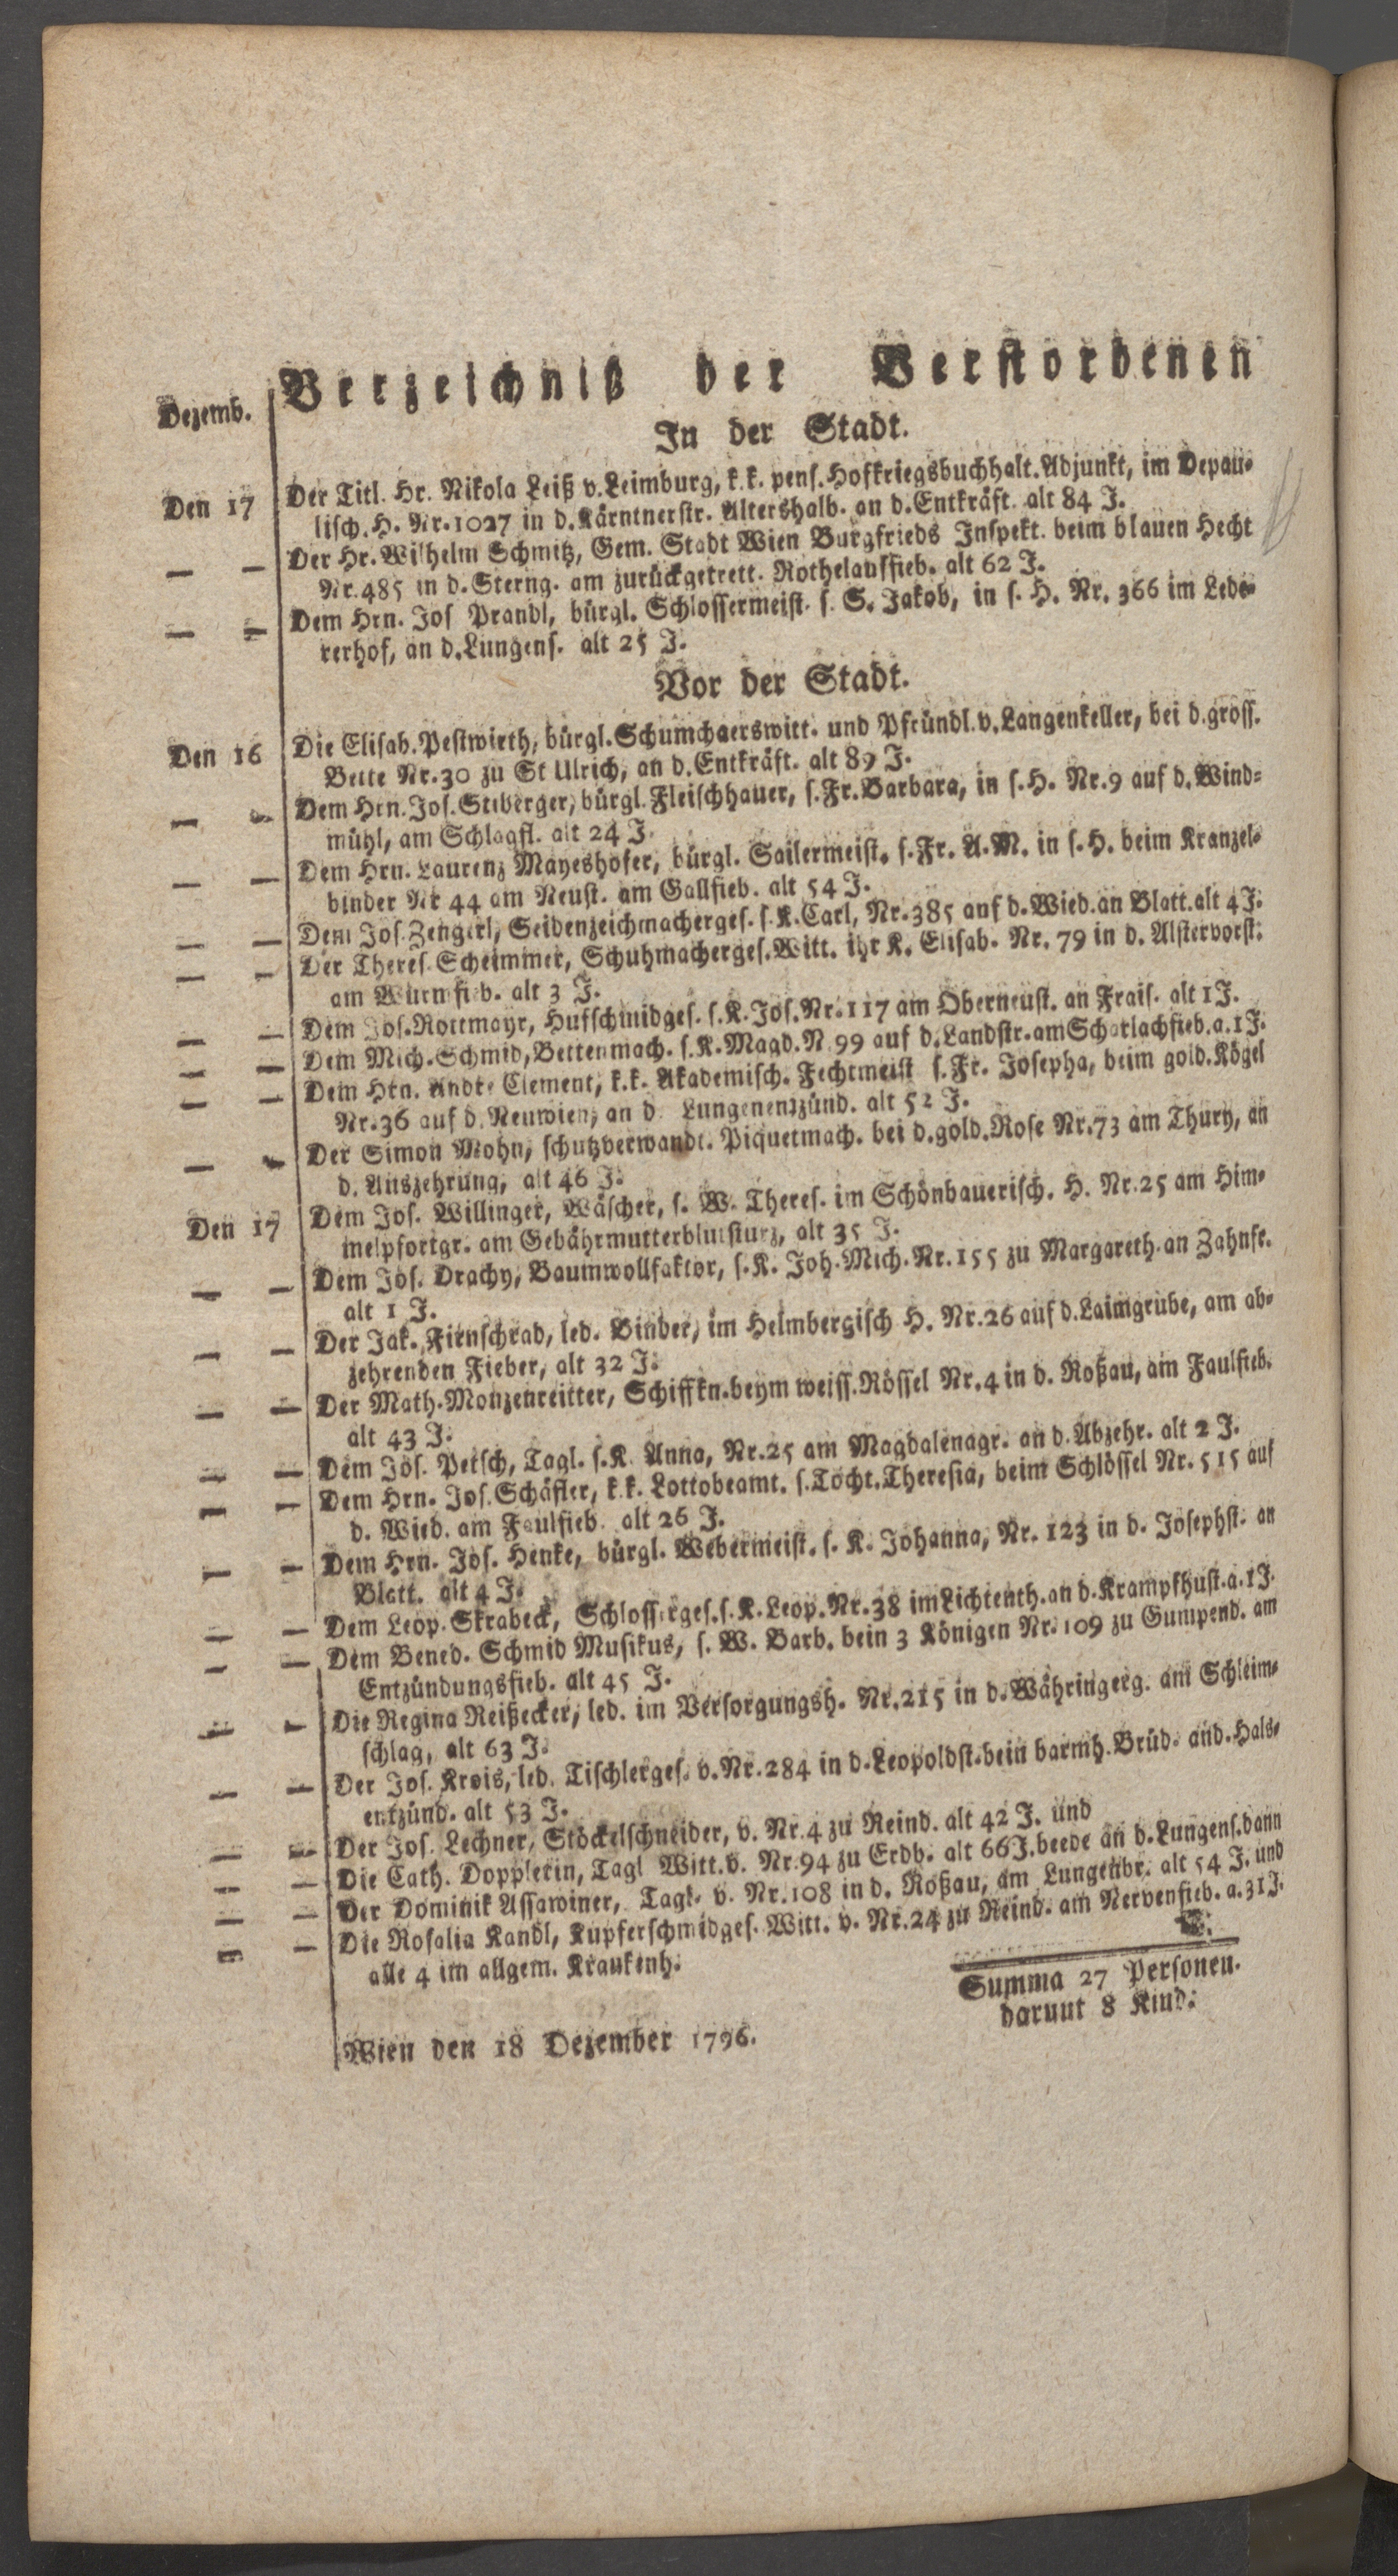 Verzeichniß der Verstorbenen
Dezemb.
In der Stadt.
Den 17 Der Titl. Hr. Nikola Leiß v. Leimburg, k.k. pens. Hofkriegsbuchhalt. Adjunkt, im Depau-
lisch. H. Nr. 1027 in d. Kärntnerstr. Altershalb. an d. Entkräft. alt 84 J.
— — Der Hr. Wilhelm Schmitz, Gem. Stadt Wien Burgfrieds Inspekt. beim blauen Hecht
Nr. 485 in d. Sterng. am zurückgetrett. Rothelausfieb. alt 62 J.
— — Dem Hrn. Jos Prandl, bürgl. Schlossermeist. s. S. Jakob, in s. H. Nr. 366 im Lede-
rerhof, an d. Lungens. alt 25 J.
Vor der Stadt.
Den 16 Die Elisab. Pestwirth, bürgl. Schumchaerswitt. und Pfründl. v. Langenkeller, bei d. gross.
Bette Nr. 30 zu St Ulrich, an d. Entkräft. alt 89 J.
— — Dem Hrn. Jos. Stiberger, bürgl. Fleischhauer, s. Fr. Barbara, in s. H. Nr. 9 auf d. Wind-
mühl, am Schlagfl. alt 24 J.
— — Dem Hrn. Laurenz Mayeshofer, bürgl. Sailermeist. s. Fr. A. M. in s. H. beim Kranzel-
binder Nr 44 am Neust. am Gallfieb. alt 54 J.
— — Dem Jos. Zengerl, Seidenzeichmacherges. s. K. Carl, Nr. 385 auf d. Wied. an Blatt. alt 4 J.
— — Der Theres. Scheimmer, Schuhmacherges. Witt. ihr K. Elisab. Nr. 79 in d. Alstervorst.
am Wurmfieb. alt 3 J.
— — Dem Jos. Rottmayr, Hufschmidges. s. K. Jos. Nr. 117 am Oberneust. an Frais. alt 1 J.
— — Dem Mich. Schmid, Bettenmach. s. K. Magd. N. 99 auf d. Landstr. am Scharlachfieb. a. 1 J.
— — Dem Hrn. Andre Clement, k.k. Akademisch. Fechtmeist s. Fr. Josepha, beim gold. Kögel
Nr. 36 auf d. Neuwien, an d. Lungenentzünd. alt 52 J.
— — Der Simon Mohn, schutzverwandt. Piquetmach. bei d. gold. Rose Nr. 73 am Thury, an
d. Auszehrung, alt 46 J.
Den 17 Dem Jos. Willinger, Wäscher, s. W. Theres. im Schönbauerisch. H. Nr. 25 am Him-
melpfortgr. am Gebährmutterblutsturz, alt 35 J.
— — Dem Jos. Drachy, Baumwollfaktor, s. K. Joh. Mich. Nr. 155 zu Margareth. an Zahnfr.
alt 1 J.
— — Der Jak. Firnschrad, led. Binder, im Helmbergisch H. Nr. 26 auf d. Laimgrube, am ab-
zehrenden Fieber, alt 32 J.
— — Der Math. Monzenreitter, Schiffkn. beym weiss. Rössel Nr. 4 in d. Roßau, am Faulfieb.
alt 43 J.
— — Dem Jos. Petsch, Tagl. s. K. Anna, Nr. 25 am Magdalenagr. an d. Abzehr. alt 2 J.
— — Dem Hrn. Jos. Schäfler, k.k. Lottobeamt. s. Tocht. Theresia, beim Schlössel Nr. 515 auf
d. Wied. am Faulfieb. alt 26 J.
— — Dem Hrn. Jos. Henke, bürgl. Webermeist. s. K. Johanna, Nr. 123 in d. Josephst. an
Blatt. alt 4 J.
— — Dem Leop. Skrabeck, Schlosserges. s. K. Leop. Nr. 38 im Lichtenth. an d. Krampfhust. a. 1 J.
— — Dem Bened. Schmid Musikus, s. W. Barb. bein 3 Königen Nr. 109 zu Gumpend. am
Entzündungsfieb. alt 45 J.
— — Die Regina Reißecker, led. im Versorgungsh. Nr. 215 in d. Währingerg. am Schleim-
schlag, alt 63 J.
— — Der Jos. Krois, led. Tischlerges. v. Nr. 284 in d. Leopoldst. bein barmh. Brüd. and. Hals-
entzünd. alt 53 J.
— — Der Jos. Lechner, Stöckelschneider, v. Nr. 4 zu Reind. alt 42 J. und
— — Die Cath. Dopplerin, Tagl Witt. v. Nr. 94 zu Erdb. alt 66 J. beede an d. Lungens. dann
— — Der Dominik Assawiner, Tagl. v. Nr. 108 in d. Roßau, am Lungenbr. alt 54 J. und
— — Die Rosalia Kandl, Kupferschmidges. Witt. v. Nr. 24 zu Reind. am Nervenfieb. a. 31 J.
alle 4 im allgem. Kraukenh.
Summa 27 Personen.
darunt 8 Kind.
Wien den 18 Dezember 1796.